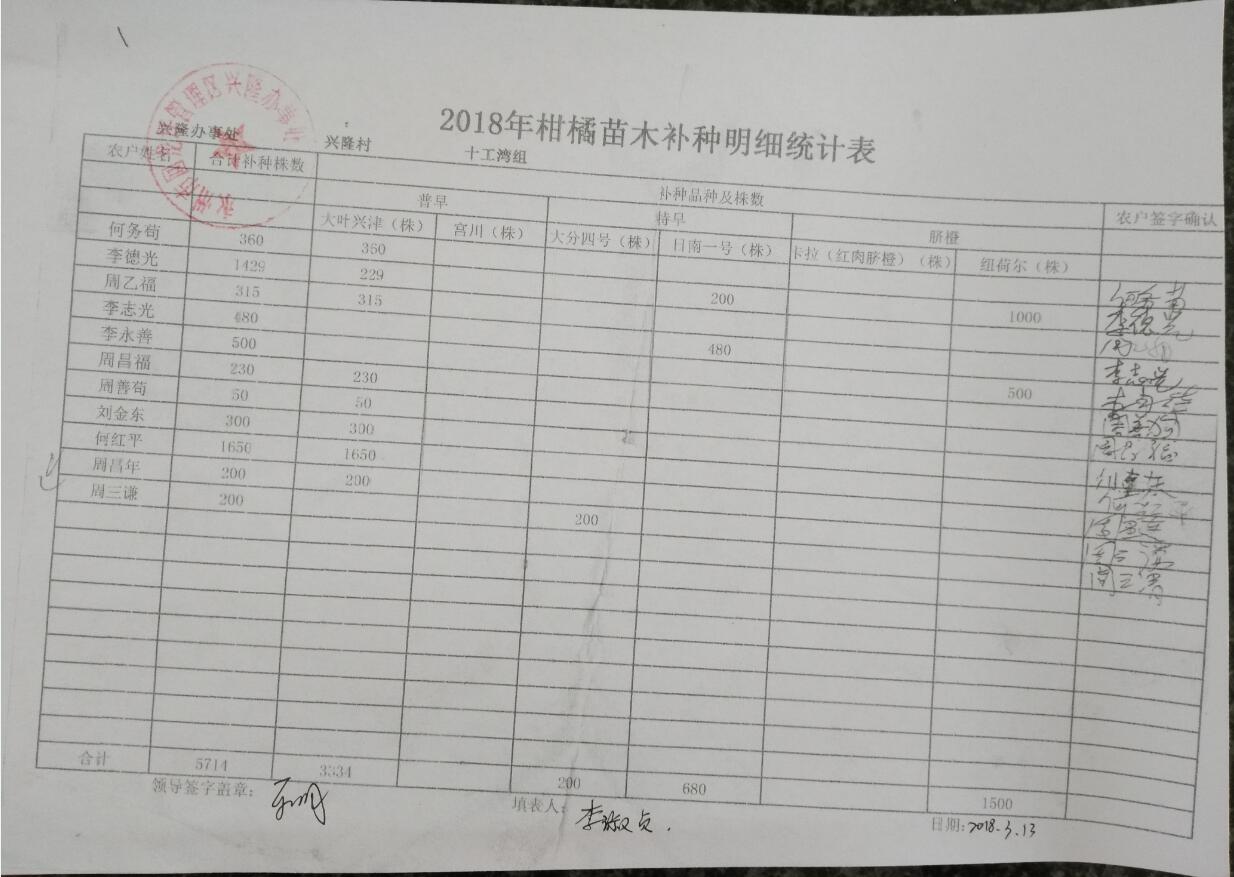 2018年柑橘苗木补种明细统计表
兴隆办事处 兴隆村 十工湾组
管理区兴隆办事处
农户姓名 合计补种株数 补种品种及株数 农户签字确认
普早 特早 脐橙
大叶兴津（株） 宫川（株） 大分四号（株） 日南一号（株） 卡拉（红肉脐橙）（株） 纽荷尔（株）
何务荀 360 360
李德光 1429 229 200 1000
周乙福 315 315
李志光 480 480 李志光
李永善 500 500
周昌福 230 230
周善荀 50 50
刘金东 300 300
何红平 1650 1650
周昌年 200 200
周三谦 200 200
合计 5714 3334 200 680 1500
领导签字盖章： 填表人：李淑贞. 日期:2018.3.13